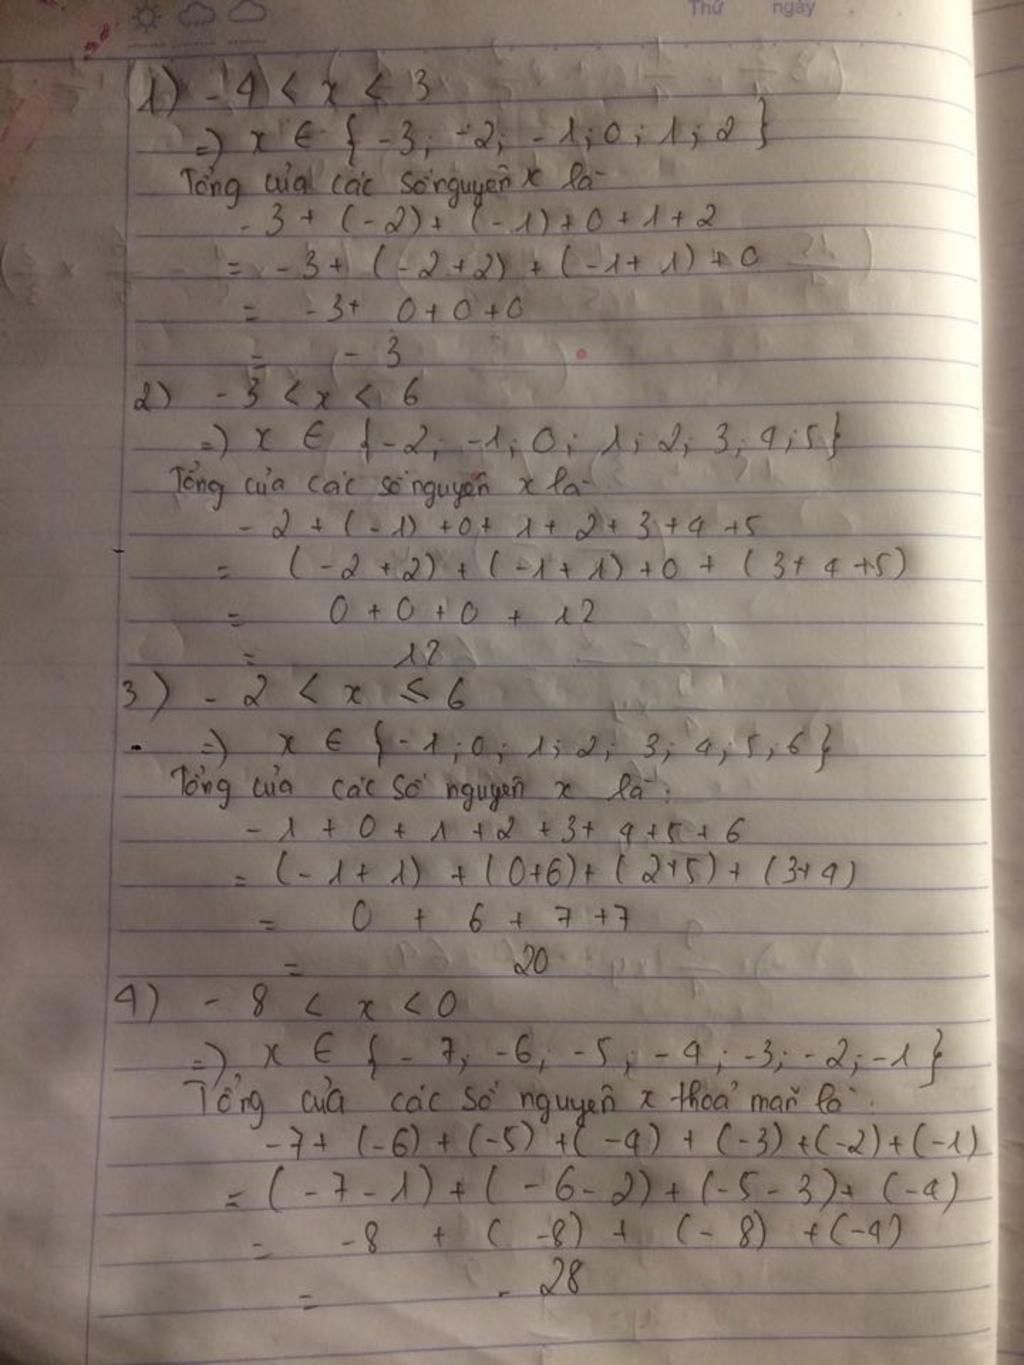 Thứ ngày
1) - 4 < x < 3
=) x ∈ { -3; -2; -1; 0; 1; 2 }
Tổng của các số nguyên x là
- 3 + (-2) + (-1) + 0 + 1 + 2
= - 3 + (-2+2) + (-1+1) + 0
= -3 + 0 + 0 + 0
= - 3
2) - 3 < x < 6
=) x ∈ { -2; -1; 0; 1; 2; 3; 4; 5 }
Tổng của các số nguyên x là
- 2 + (-1) + 0 + 1 + 2 + 3 + 4 + 5
= (-2+2) + (-1+1) + 0 + (3+4+5)
= 0 + 0 + 0 + 12
= 12
3) - 2 < x ≤ 6
=) x ∈ { -1; 0; 1; 2; 3; 4; 5; 6 }
Tổng của các số nguyên x là:
- 1 + 0 + 1 + 2 + 3 + 4 + 5 + 6
= (-1+1) + (0+6) + (2+5) + (3+4)
= 0 + 6 + 7 + 7
= 20
4) - 8 < x < 0
=) x ∈ { -7; -6; -5; -4; -3; -2; -1 }
Tổng của các số nguyên x thoả mãn là:
-7 + (-6) + (-5) + (-4) + (-3) + (-2) + (-1)
= (-7-1) + (-6-2) + (-5-3) + (-4)
= -8 + (-8) + (-8) + (-4)
= - 28